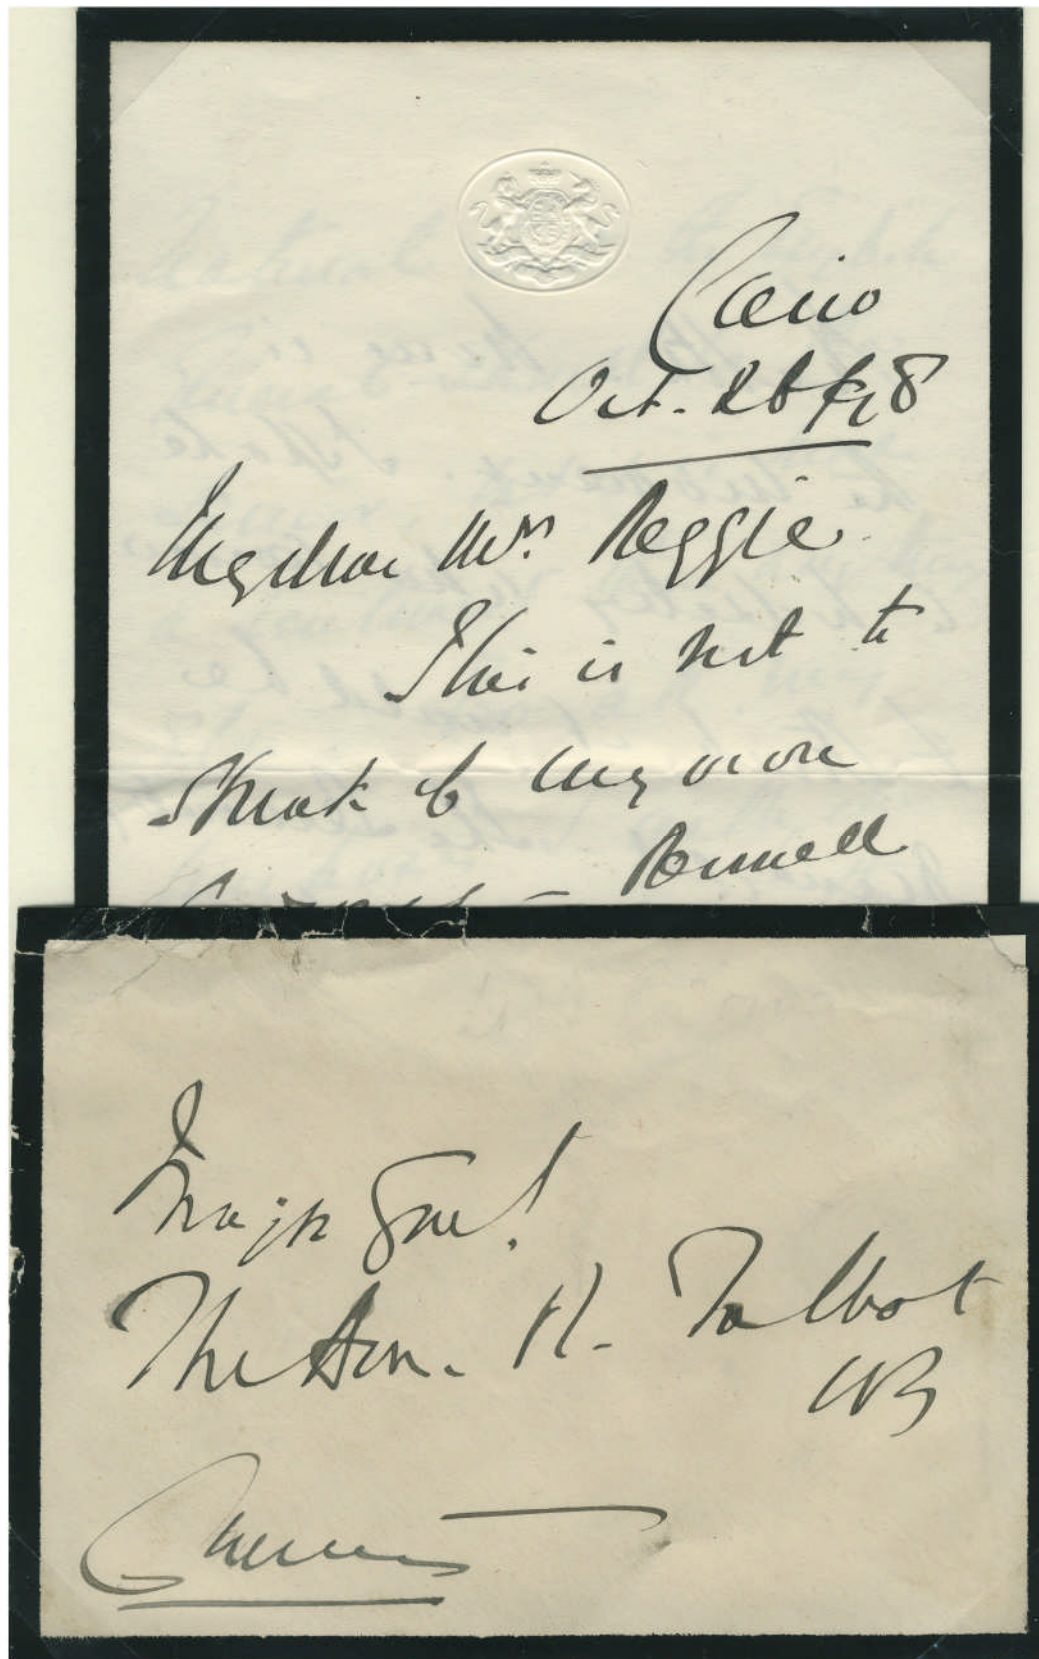 Cairo
Oct. 26/98
My dear Mrs. Reggie
This is not to
speak of my own
– Rennell
Major Genl.
The Hon. R. Talbot
CB
Cromer